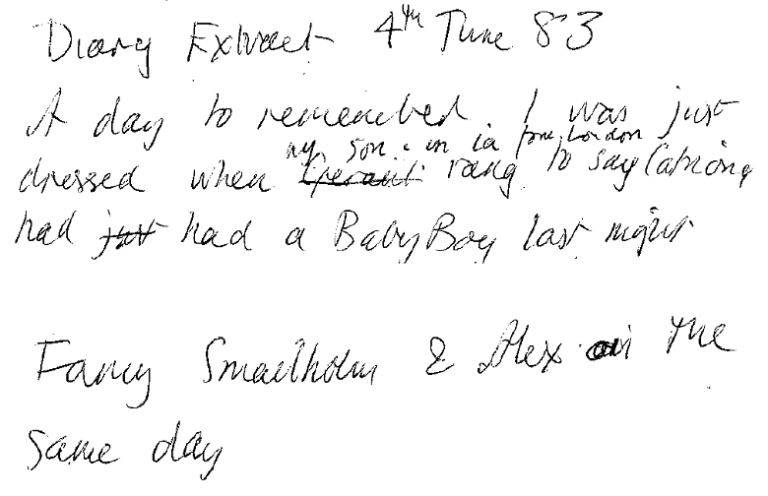 Diary Extract 4th June 83
A day to remember. I was just
my son-in-la from London
dressed when Gerault rang to say Catriona
had just had a Baby Boy last night
Fancy Smailholm & Alex on the
same day